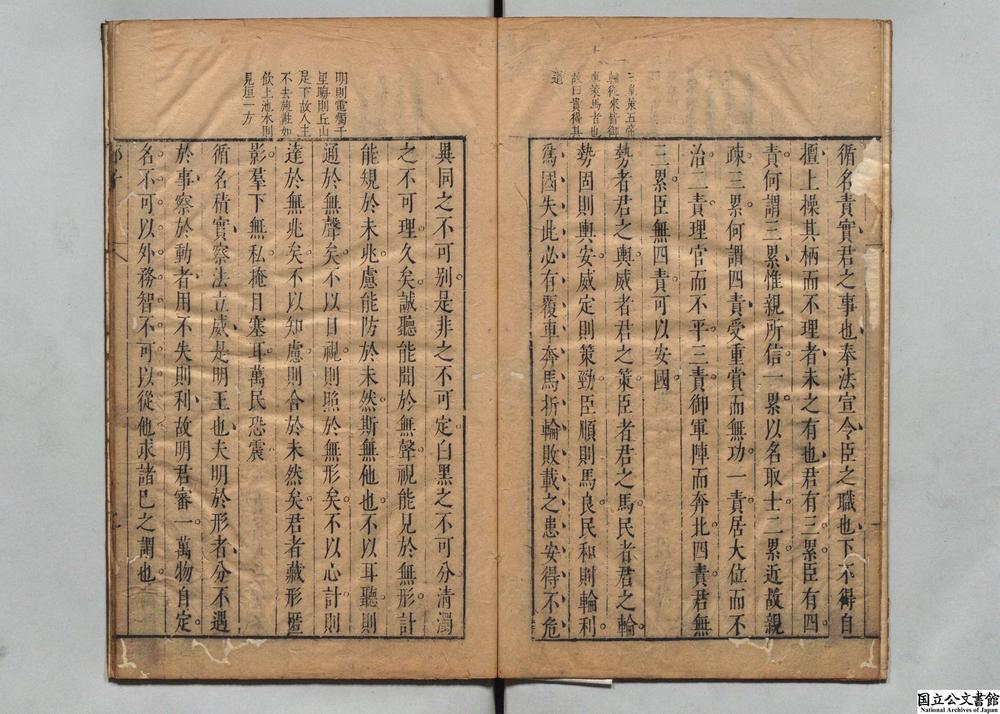 三皇策五帝
輪從來皆御
車策馬者也
故曰貴得其
道
循名責實君之事也奉法宣令臣之職也下不得自
擅上操其柄而不理者未之有也君有三累臣有四
責何謂三累惟親所信一累以名取士二累近故親
疎三累何謂四責受重賞而無功一責居大位而不
治二責理官而不平三責御軍陣而奔北四責君無
三累臣無四責可以安國
勢者君之輿威者君之策臣者君之馬民者君之輪
勢固則輿安威定則策勁臣順則馬良民和則輪利
爲國失此必有覆車奔馬折輪敗載之患安得不危
明則電燭千
里晦則丘山
是下故人主
不去旒黈如
飲上池水則
見垣一方
異同之不可别是非之不可定白黑之不可分清濁
之不可理久矣誠聽能聞於無聲視能見於無形計
能規於未兆慮能防於未然斯無他也不以耳聽則
通於無聲矣不以目視則照於無形矣不以心計則
達於無兆矣不以知慮則合於未然矣君者藏形匿
影羣下無私掩目塞耳萬民恐震
循名積實察法立威是明王也夫明於形者分不遇
於事察於動者用不失則利故明君審一萬物自定
名不可以外務智不可以從他求諸己之謂也
国立公文書館
National Archives of Japan